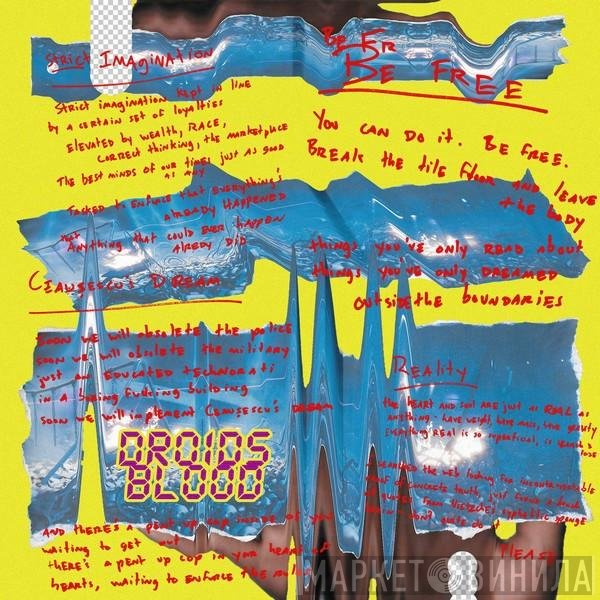 Strict Imagination
Strict imagination kept in line
by a certain set of loyalties
elevated by wealth, race,
correct thinking, the marketplace
The best minds of our times just as good
as any
Tasked to enforce that everything's
already happened
that
Anything that could ever happen
already did
Ceausescu's Dream
Soon we will obsolete the police
soon we will obsolete the military
just an educated technorati
in a boring fucking building
soon we will implement Ceausescu's dream
DROIDS
BLOOD
And there's a pent up cop inside of you
waiting to get out
there's a pent up cop in your heart of
hearts, waiting to enforce the
Be Fr
Be Free
You can do it. Be free.
Break the tile floor and leave
the body
things you've only read about
things you've only dreamed
outside the boundaries
Reality
the heart and soul are just as real as
anything - have weight, have mass, have gravity
everything real is so
I searched the web looking for incontrovertible
proof of concrete truth, just found a
of quotes from Nietzsche's syphilitic sponge
brain - don't quite do it
Please
МАРКЕТ ВИНИЛА